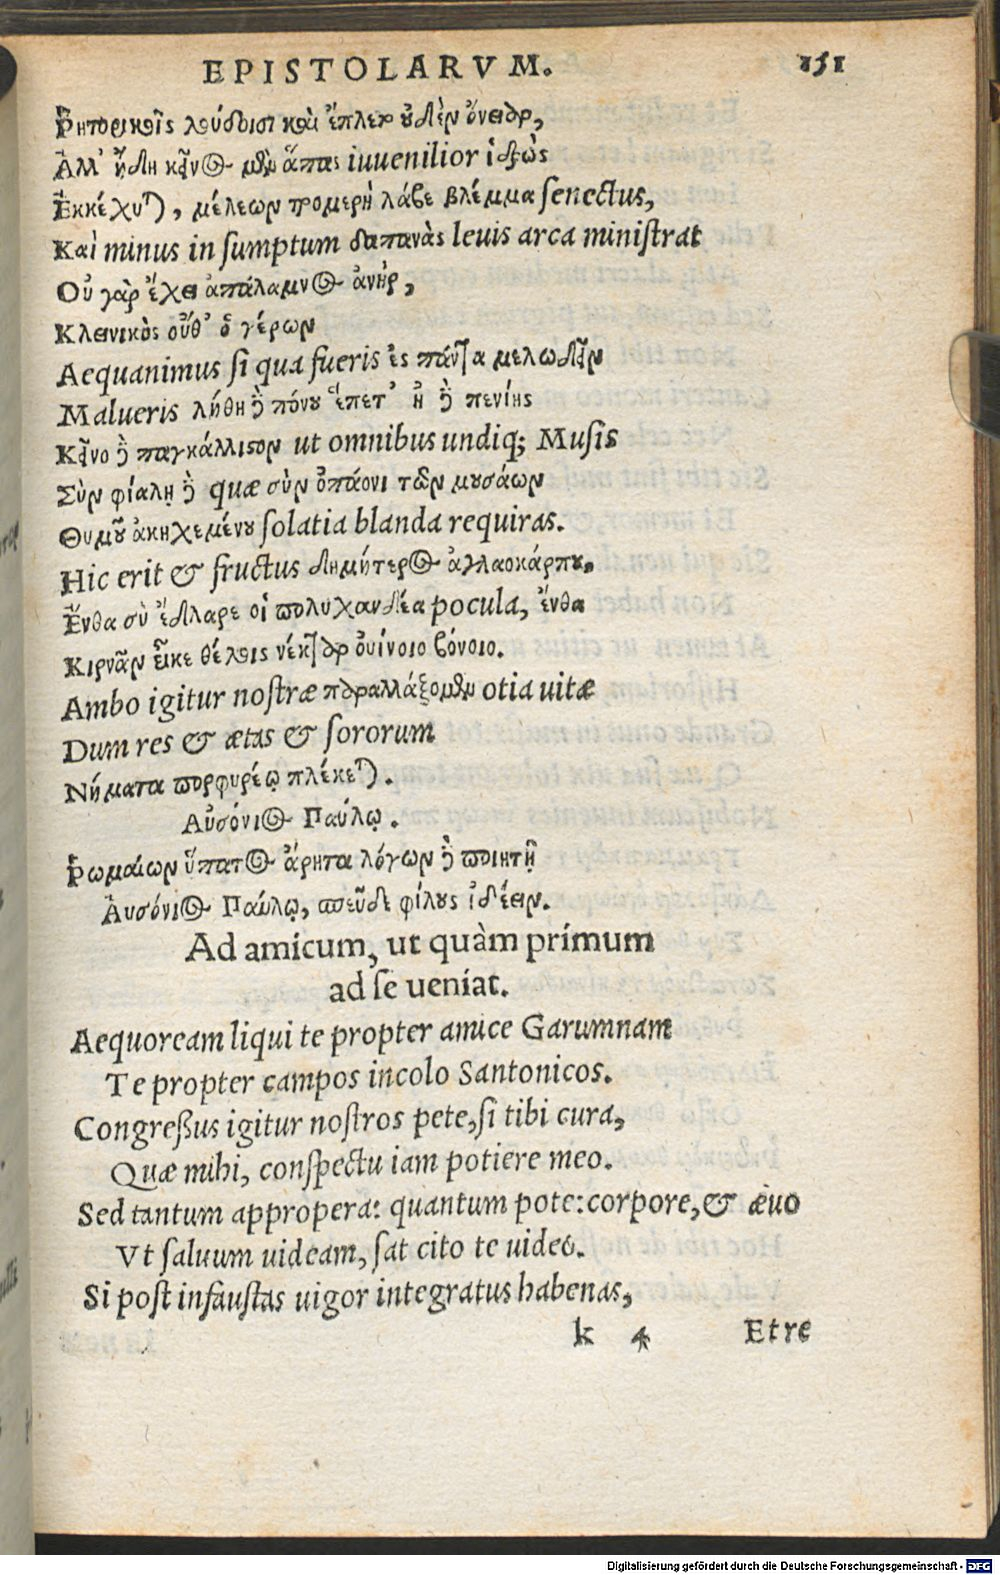 EPISTOLARVM. 151
Ῥητορικοῖς λούδοισι καὶ ἔπλεο οὐδὲν ὄνειαρ,
Ἀλλ' ἤδη κεῖνος μὲν ἅπας iuuenilior ἱδρὼς
Ἐκκέχυται, μέλεων τρομερὴ λάβε βλέμμα senectus,
Καὶ minus in sumptum δαπανὰς leuis arca ministrat
Οὐ γὰρ ἔχει ἀπάλαμνος ἀνὴρ,
Κλεινικὸς οὔθ' ὁ γέρων
Aequanimus si qua fueris ἐς πάντα μελωδεῖν
Malueris λήθη δὲ πόνου ἕπετ' ἠ δὲ πενίης
Κεῖνο δὲ παγκάλλιστον ut omnibus undiq; Musis
Σὺν φιάλῃ δὲ quæ σὺν ὀπάονι τῶν μουσάων
Θυμοῦ ἀκηχεμένου solatia blanda requiras.
Hic erit & fructus δημήτερος ἀγλαοκάρπου.
Ἔνθα σὺ ἔδλαρε οἱ πολυχανδέα pocula, ἔνθα
Κιρνᾶν εἶκε θέλοις νέκταρ οὐίνοιο βόνοιο.
Ambo igitur nostræ παραλλάξομεν otia uitæ
Dum res & ætas & sororum
Νήματα πορφυρέῳ πλέκεται.
Αὐσόνιος Παύλῳ.
Ῥωμαίων ὕπατος ἄρητα λόγων δὲ ποιητῇ
Αὐσόνιος Παύλῳ, σπεῦδε φίλους ἰδέειν.
Ad amicum, ut quàm primum
ad se ueniat.
Aequoream liqui te propter amice Garumnam
Te propter campos incolo Santonicos.
Congreßus igitur nostros pete, si tibi cura,
Quæ mihi, conspectu iam potiere meo.
Sed tantum appropera: quantum pote: corpore, & æuo
Vt saluum uideam, sat cito te uideo.
Si post infaustas uigor integratus habenas,
k 4 Et re
Digitalisierung gefördert durch die Deutsche Forschungsgemeinschaft - DFG